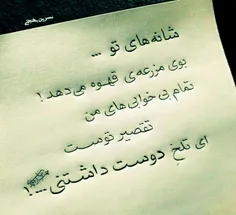 نسرین بهجتی
شانه‌های تو ...
بوی مزرعه‌ی قهوه می‌دهد !
تمام بی‌خوابی‌های من
تقصیر توست
ای تلخِ دوست داشتنی...!